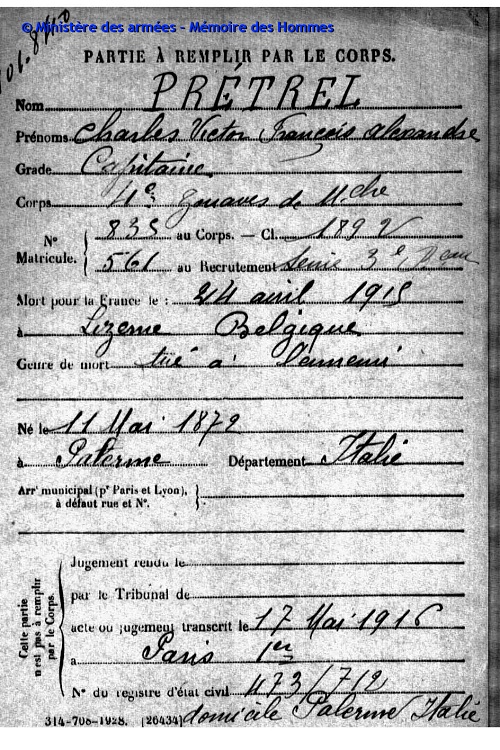 © Ministère des armées - Mémoire des Hommes
PARTIE À REMPLIR PAR LE CORPS.
Nom PRÉTREL
Prénoms Charles Victor François Alexandre
Grade Capitaine
Corps 4e Zouaves de Mche
N° Matricule. 835 au Corps. — Cl. 1892
561 au Recrutement Seine 3e Beau
Mort pour la France le : 24 avril 1915
à Lizerne Belgique
Genre de mort tué à l'ennemi
Né le 11 Mai 1872
à Palerme Département Italie
Arrt municipal (pr Paris et Lyon),
à défaut rue et N°.
Cette partie
n'est pas à remplir
par le Corps.
Jugement rendu le
par le Tribunal de
acte ou jugement transcrit le 17 Mai 1916
à Paris 1er
N° du registre d'état civil 473/712
314-708-1928. [26434] domicile Palerme Italie